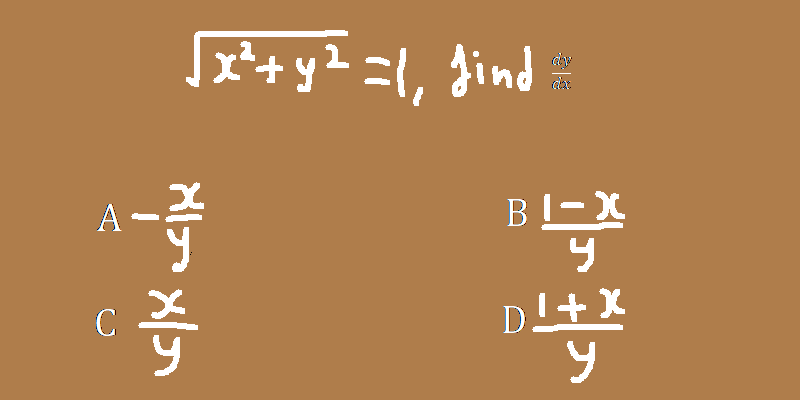 √(x²+y²) = 1, find dy/dx
A -x/y
B (1-x)/y
C x/y
D (1+x)/y